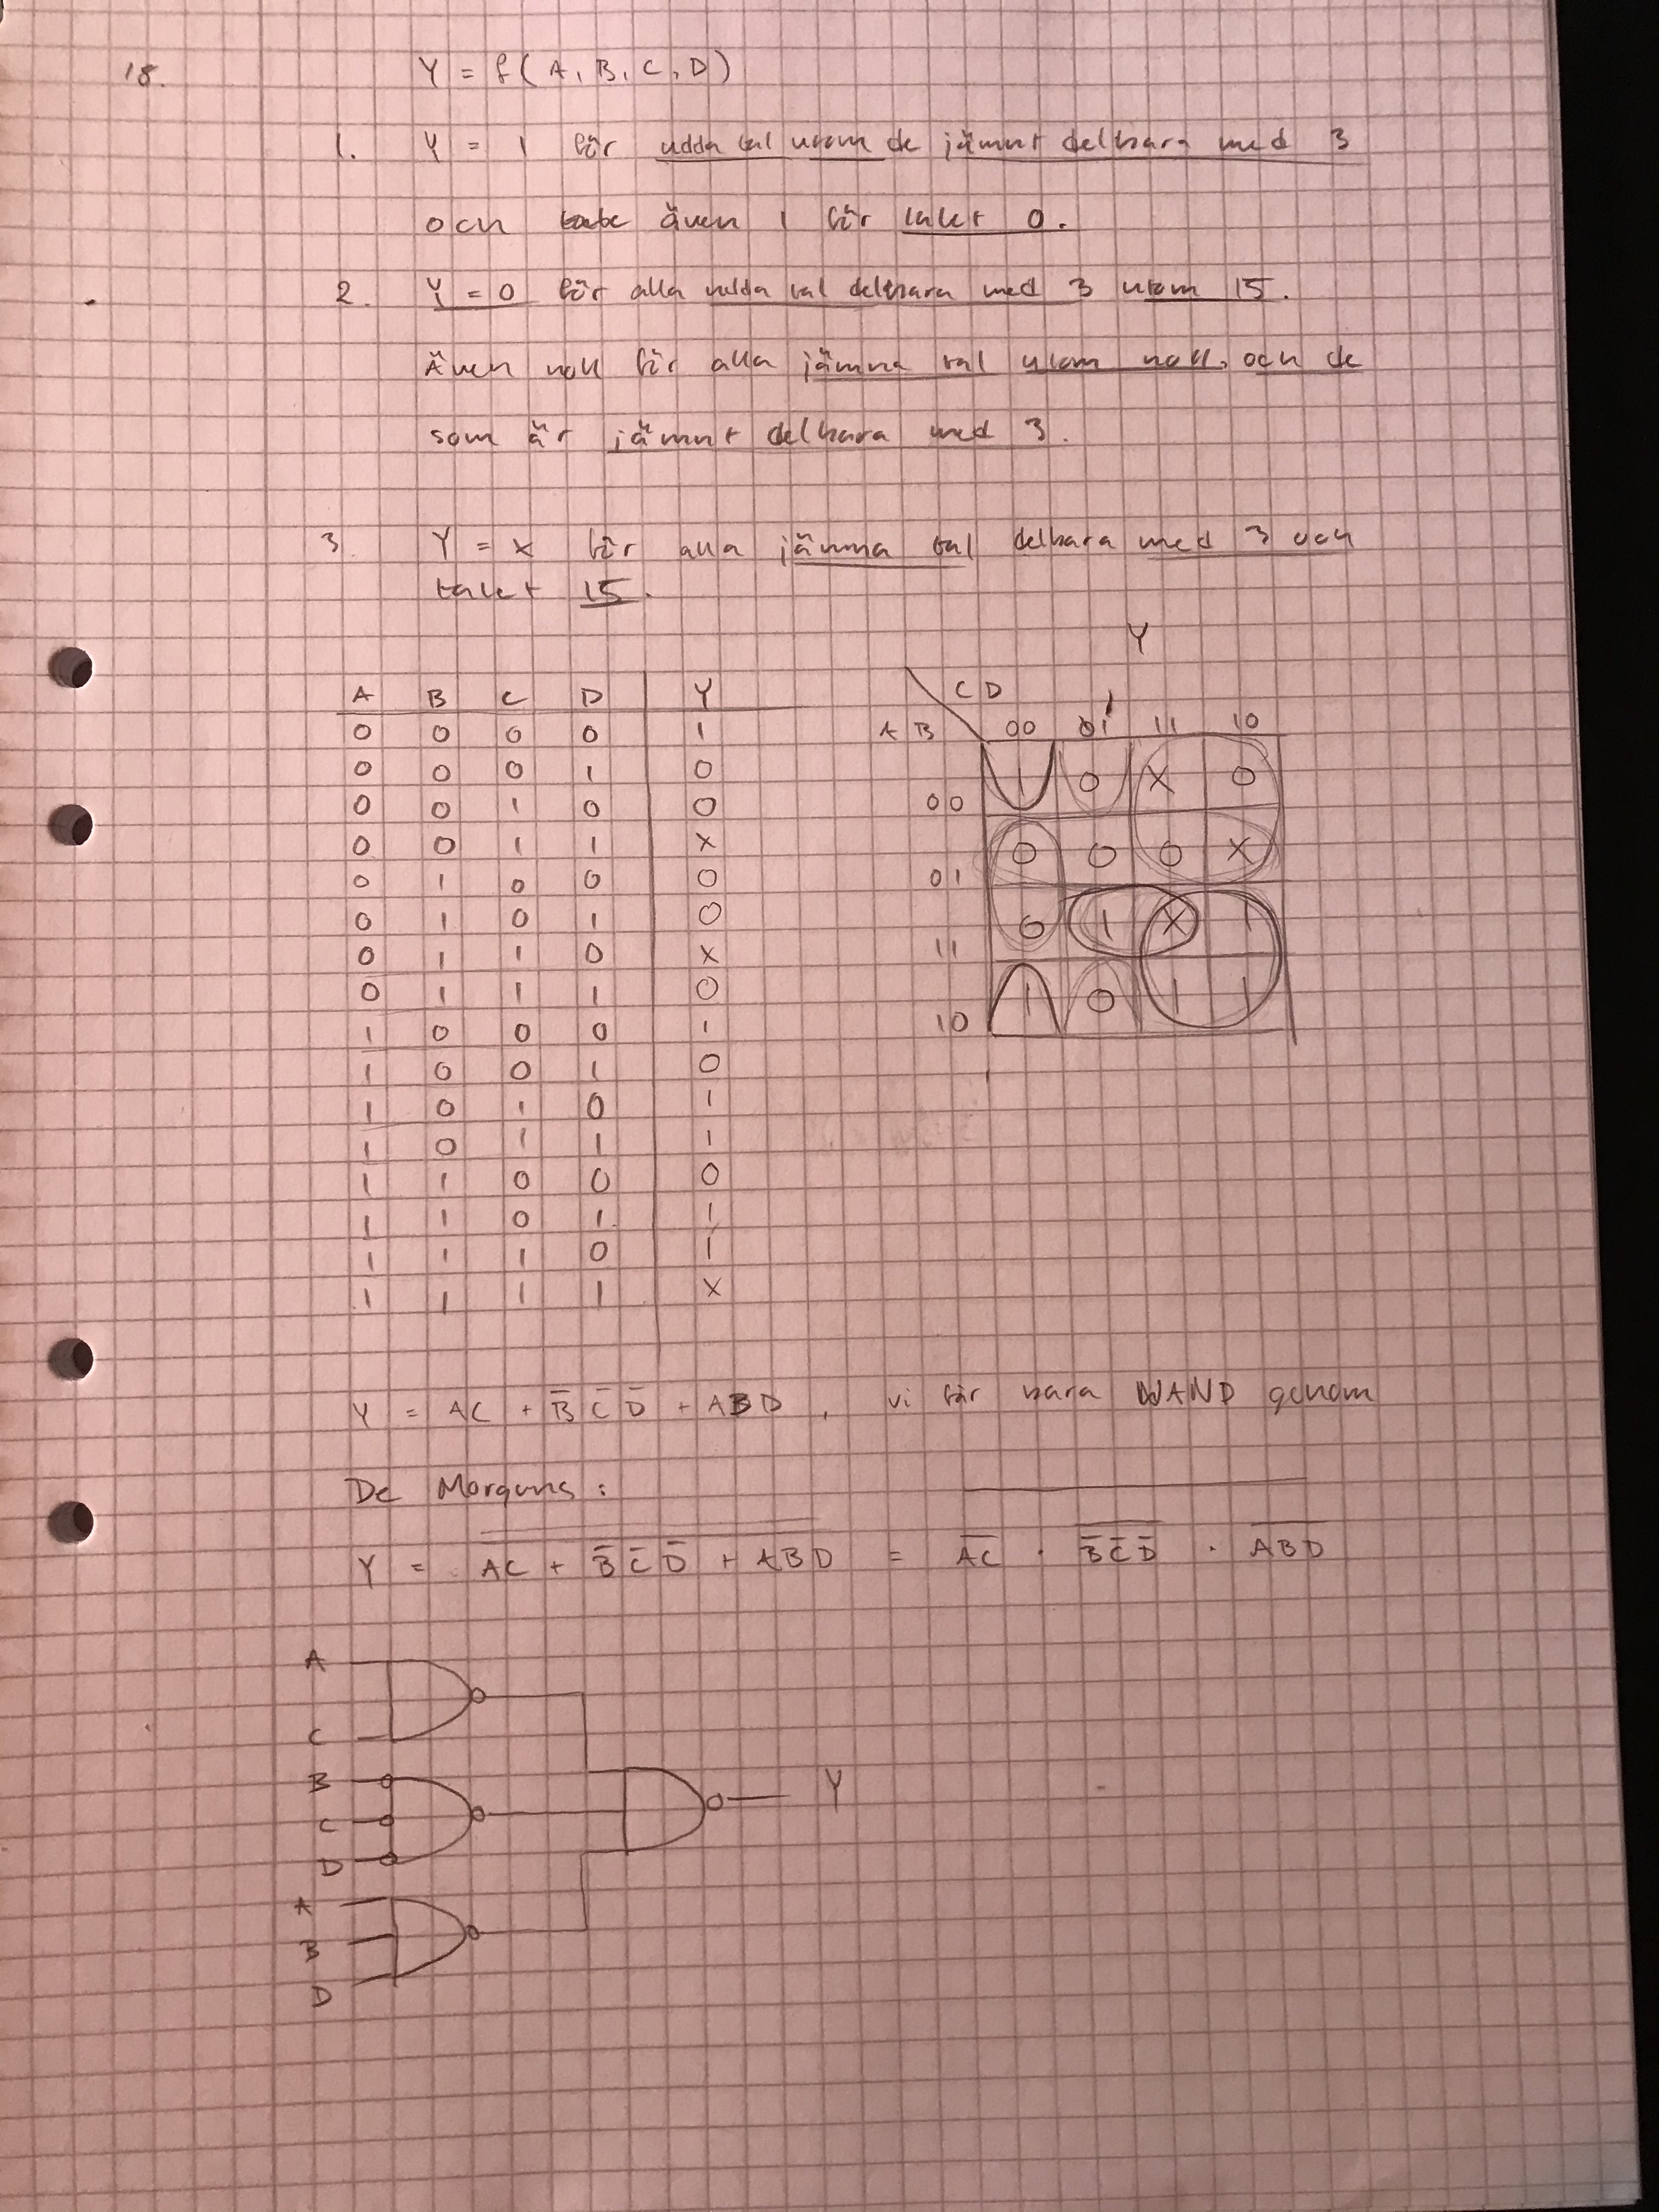 18. Y = f(A, B, C, D)
1. Y = 1 för udda tal utom de jämnt delbara med 3
och även 1 för talet 0.
2. Y = 0 för alla udda tal delbara med 3 utom 15.
Även noll för alla jämna tal utom noll, och de
som är jämnt delbara med 3.
3. Y = x för alla jämna tal delbara med 3 och
talet 15.
Y
A B C D Y
0 0 0 0 1
0 0 0 1 0
0 0 1 0 0
0 0 1 1 X
0 1 0 0 0
0 1 0 1 0
0 1 1 0 X
0 1 1 1 0
1 0 0 0 1
1 0 0 1 0
1 0 1 0 1
1 0 1 1 1
1 1 0 0 0
1 1 0 1 1
1 1 1 0 1
1 1 1 1 X
CD
AB 00 01 11 10
00 1 0 X 0
01 0 0 0 X
11 0 1 X 1
10 1 0 1 1
Y = AC + B̅ C̅ D̅ + ABD, vi får bara NAND genom
De Morgans:
Y = AC + B̅ C̅ D̅ + ABD = A̅C̅ · B̅C̅D̅ · A̅B̅D̅
A
C
B
C
D
A
B
D
Y